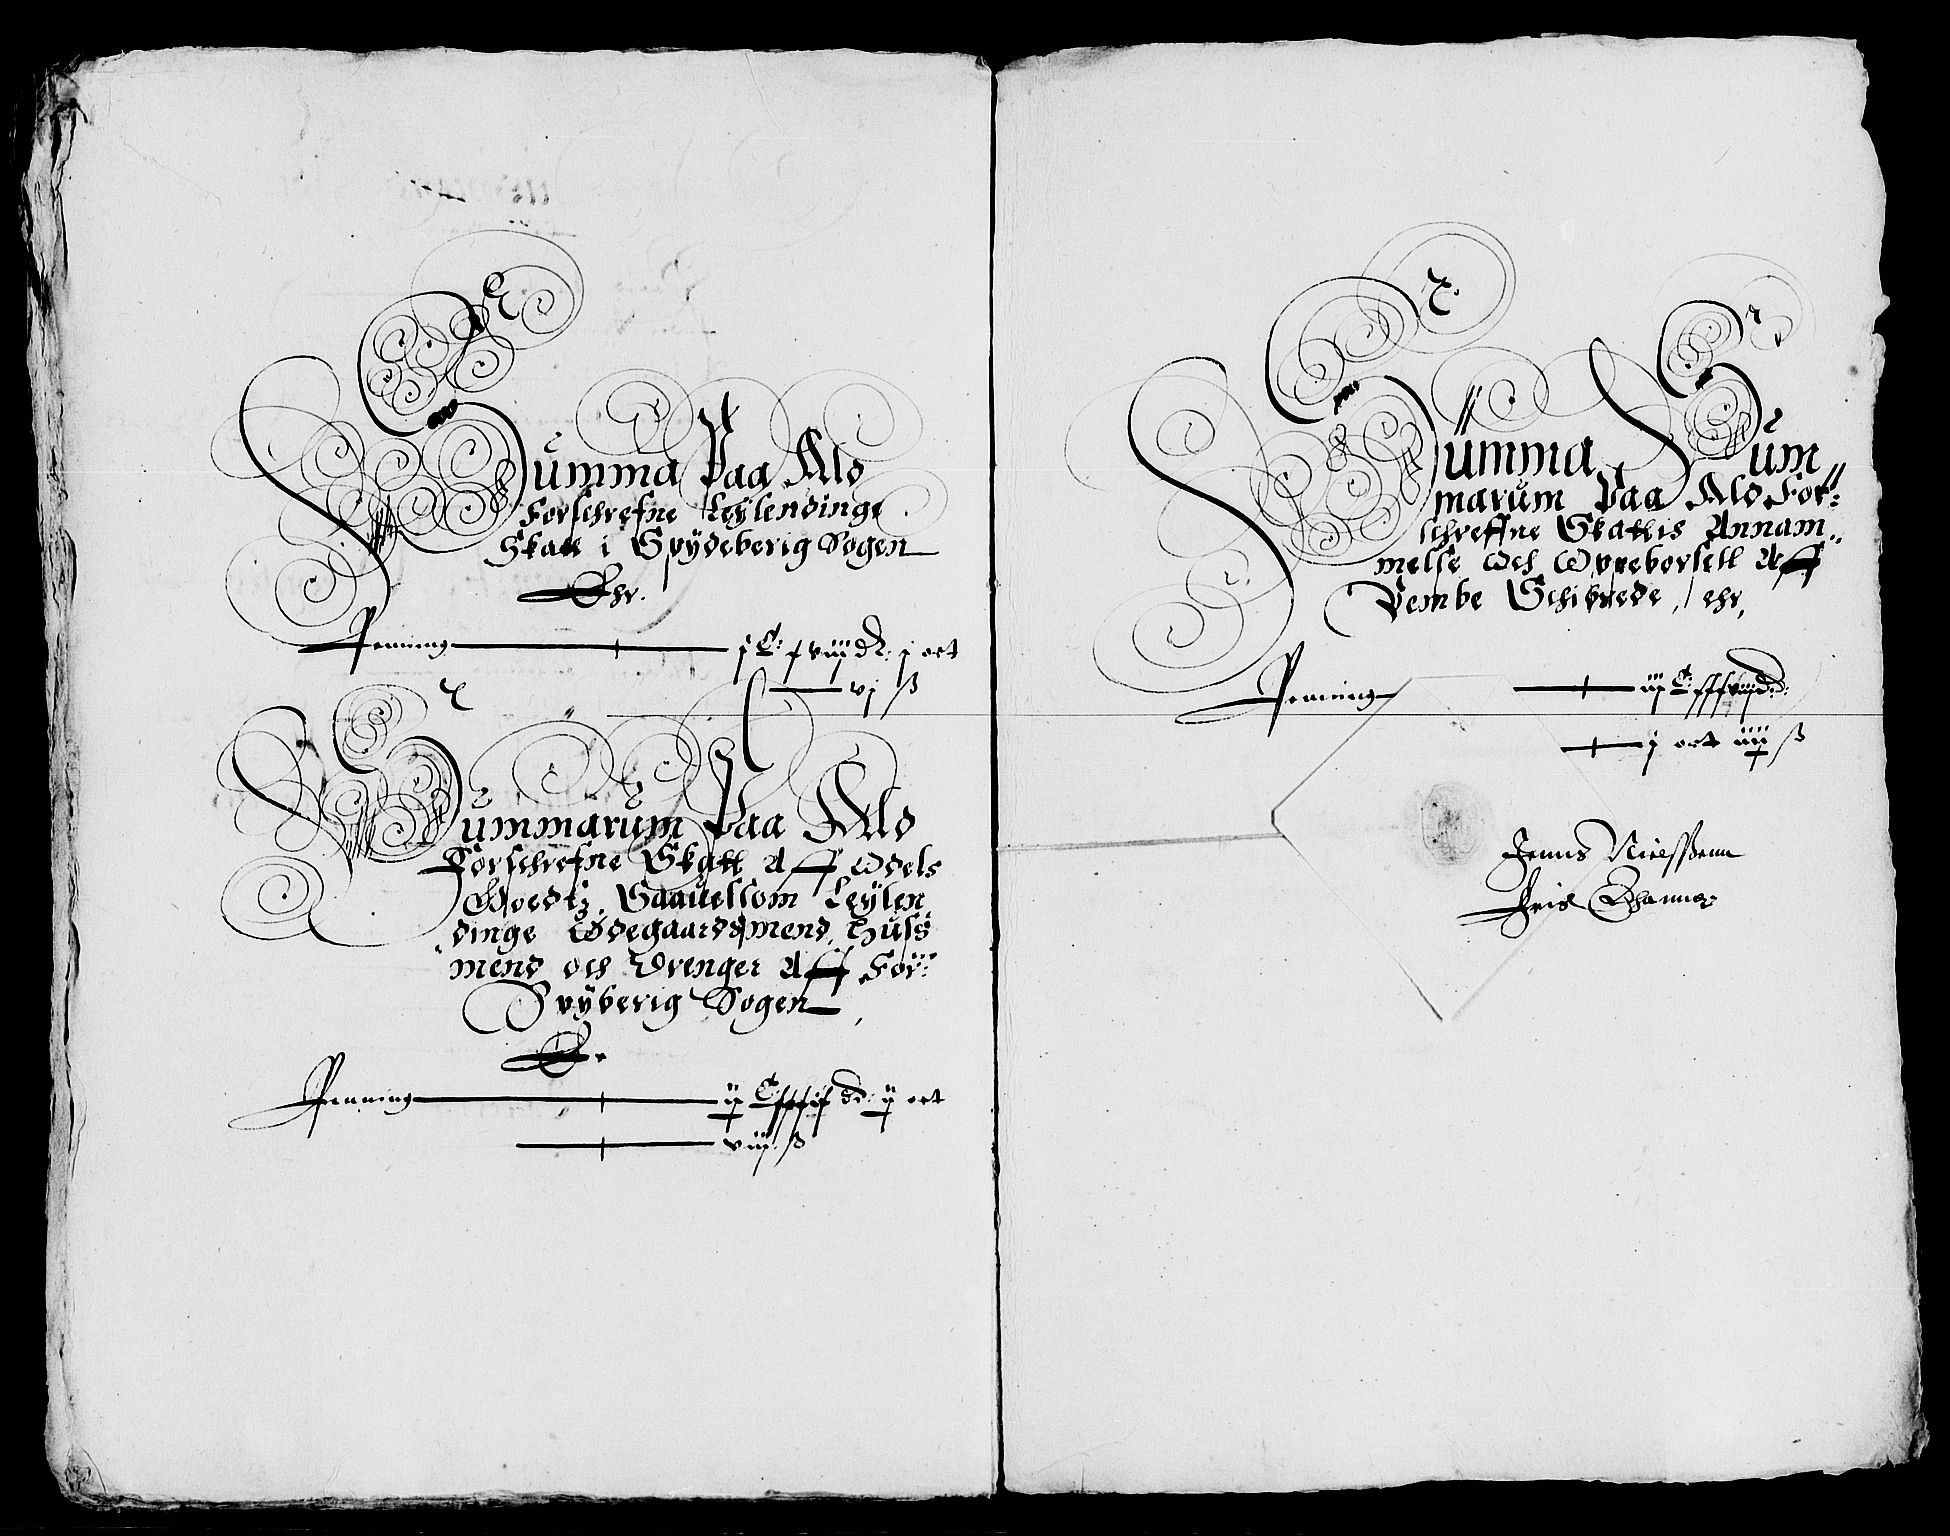 Summa Paa Ald
Forschrefne Leylendinge
Skatt i Spydeberig Sogen
Ehr.
Penning j C: xviij dr: j ort
vj ß
Summarum Paa Ald
Forschrefne Skatt Aff Odels
Goedtz, Saauelsom Leylen
dinge Ødegaardsmend, Huss
mend och Drenger Aff For:
Spyberig Sogen
Er
Penning ij C xxxix dr: ij ort
viij ß
Summa Sum
marum Paa Ald For:
schreffne Skattis Annam
melse och Oppeborsell Aff
Vembe Schibrede, ehr,
Penning iij C: xxxviij dr:
j ort iiij ß
Jenns Nielssenn